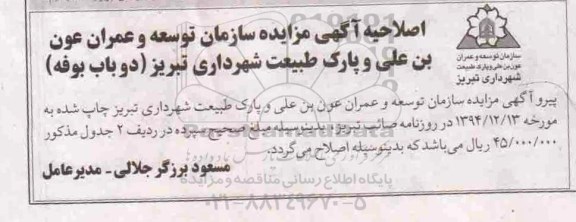 اصلاحیه آگهی مزایده سازمان توسعه و عمران عون
بن علی و پارک طبیعت شهرداری تبریز (دو باب بوفه)
سازمان توسعه و عمران
عون بن علی و پارک طبیعت
شهرداری تبریز
پیرو آگهی مزایده سازمان توسعه و عمران عون بن علی و پارک طبیعت شهرداری تبریز چاپ شده به
مورخه ۱۳۹۴/۱۲/۱۳ در روزنامه صائب تبریز، بدینوسیله مبلغ صحیح سپرده در ردیف ۲ جدول مذکور
۴۵/۰۰۰/۰۰۰ ریال می‌باشد که بدینوسیله اصلاح می‌گردد.
مسعود برزگر جلالی - مدیرعامل
پایگاه اطلاع رسانی مناقصه و مزایده
۰۲۱-۸۸۳۴۹۶۷۰-۵